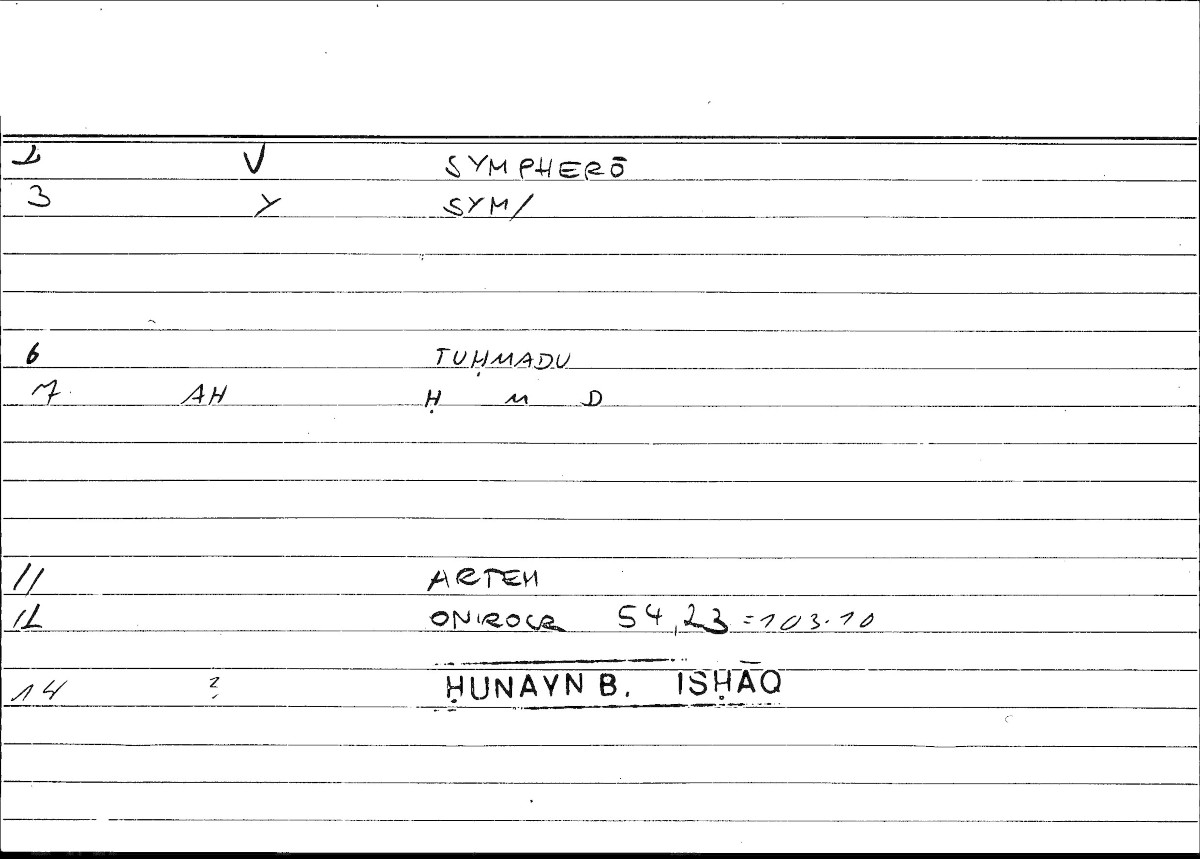 2 V SYMPHERŌ
3 Y SYM/
6 TUḤMADU
7 AH Ḥ M D
11 ARTEM
12 ONIROCR 54,23=103.10
14 ? ḤUNAYN B. ISḤĀQ